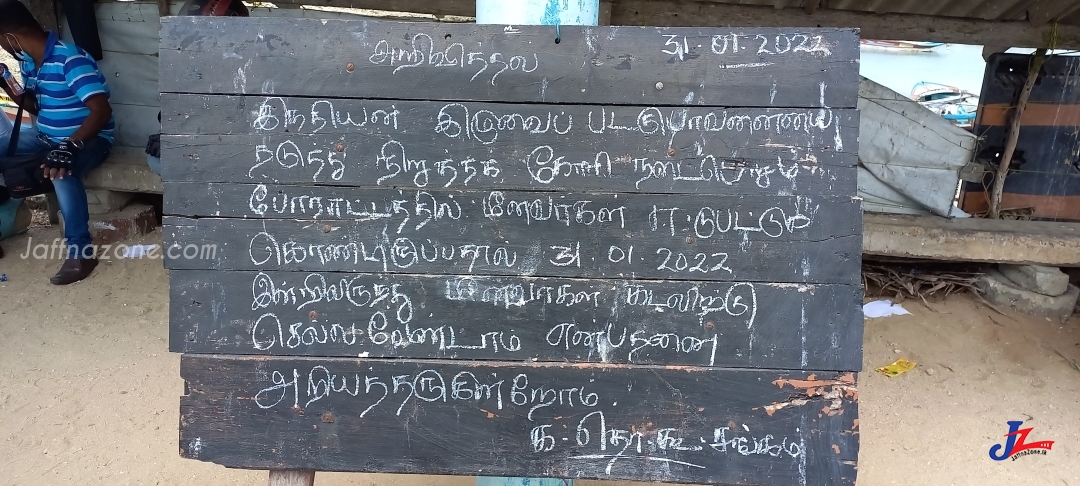 அறிவித்தல்
31.01.2022
இந்தியன் இழுவைப் படகுபாவனையை
தடுத்து நிறுத்தக் கோரி நடைபெறும்
போராட்டத்தில் மீனவர்கள் ஈடுபட்டுக்
கொண்டிருப்பதால் 31.01.2022
இன்றிலிருந்து மீனவர்கள் கடலிற்கு
செல்ல வேண்டாம் என்பதனை
அறியத்தருகின்றோம்.
க.தொ.கூ.சங்கம்
Jaffnazone.com
JZ
JaffnaZone.lk